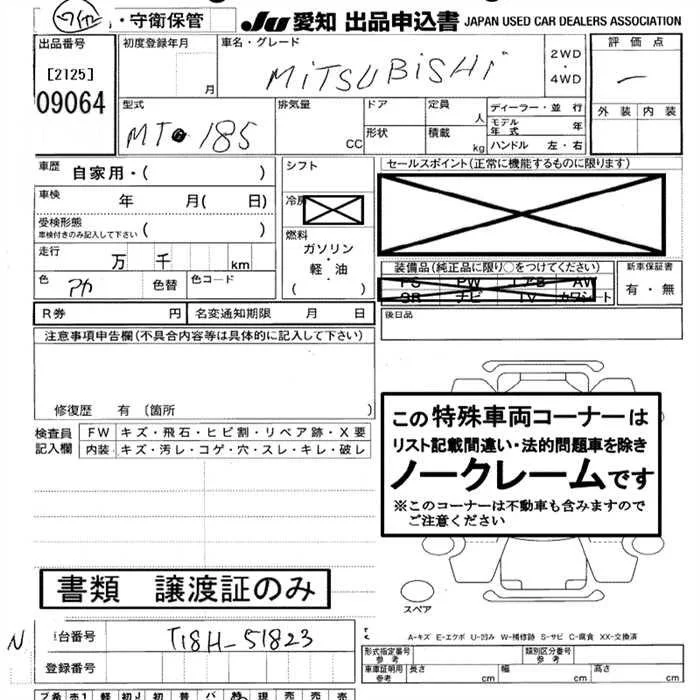 ・守衛保管 JU 愛知 出品申込書 JAPAN USED CAR DEALERS ASSOCIATION
出品番号 初度登録年月 車名・グレード 評価点
[2125] 月 MiTSUBiSHi 2WD・4WD
09064 型式 排気量 ドア 定員 人 ディーラー・並 行 外装 内装
MT 185 CC 形状 積載 kg モデル年式 年
ハンドル 左・右
車歴 自家用・( ) シフト セールスポイント(正常に機能するものに限ります)
車検 年 月( 日) 冷房
受検形態 ( )
車検付きのみ記入して下さい
燃料
走行 万 千 km ガソリン・軽・油 ( )
装備品(純正品に限り○をつけてください) 新車保証書
色 アカ 色替 色コード
PS PW エアB AW 有・無
SR ナビ TV カワシート
R券 円 名変通知期限 月 日 後日品
注意事項申告欄(不具合内容等は具体的に記入して下さい)
修復歴 有 〔箇所 〕
この特殊車両コーナーは
リスト記載間違い・法的問題車を除き
ノークレームです
※このコーナーは不動車も含みますので
ご注意ください
検査員記入欄 FW キズ・飛石・ヒビ割・リペア跡・X要
内装 キズ・汚レ・コゲ・穴・スレ・キレ・破レ
書類 譲渡証のみ
スペア
N 台番号 T18H-51823
A-キズ E-エクボ U-凹み W-補修跡 S-サビ C-腐食 XX-交換済
登録番号
形式指定番号 参考 類別区分番号 参考
車庫証明用 参考 長さ cm 幅 cm 高さ cm